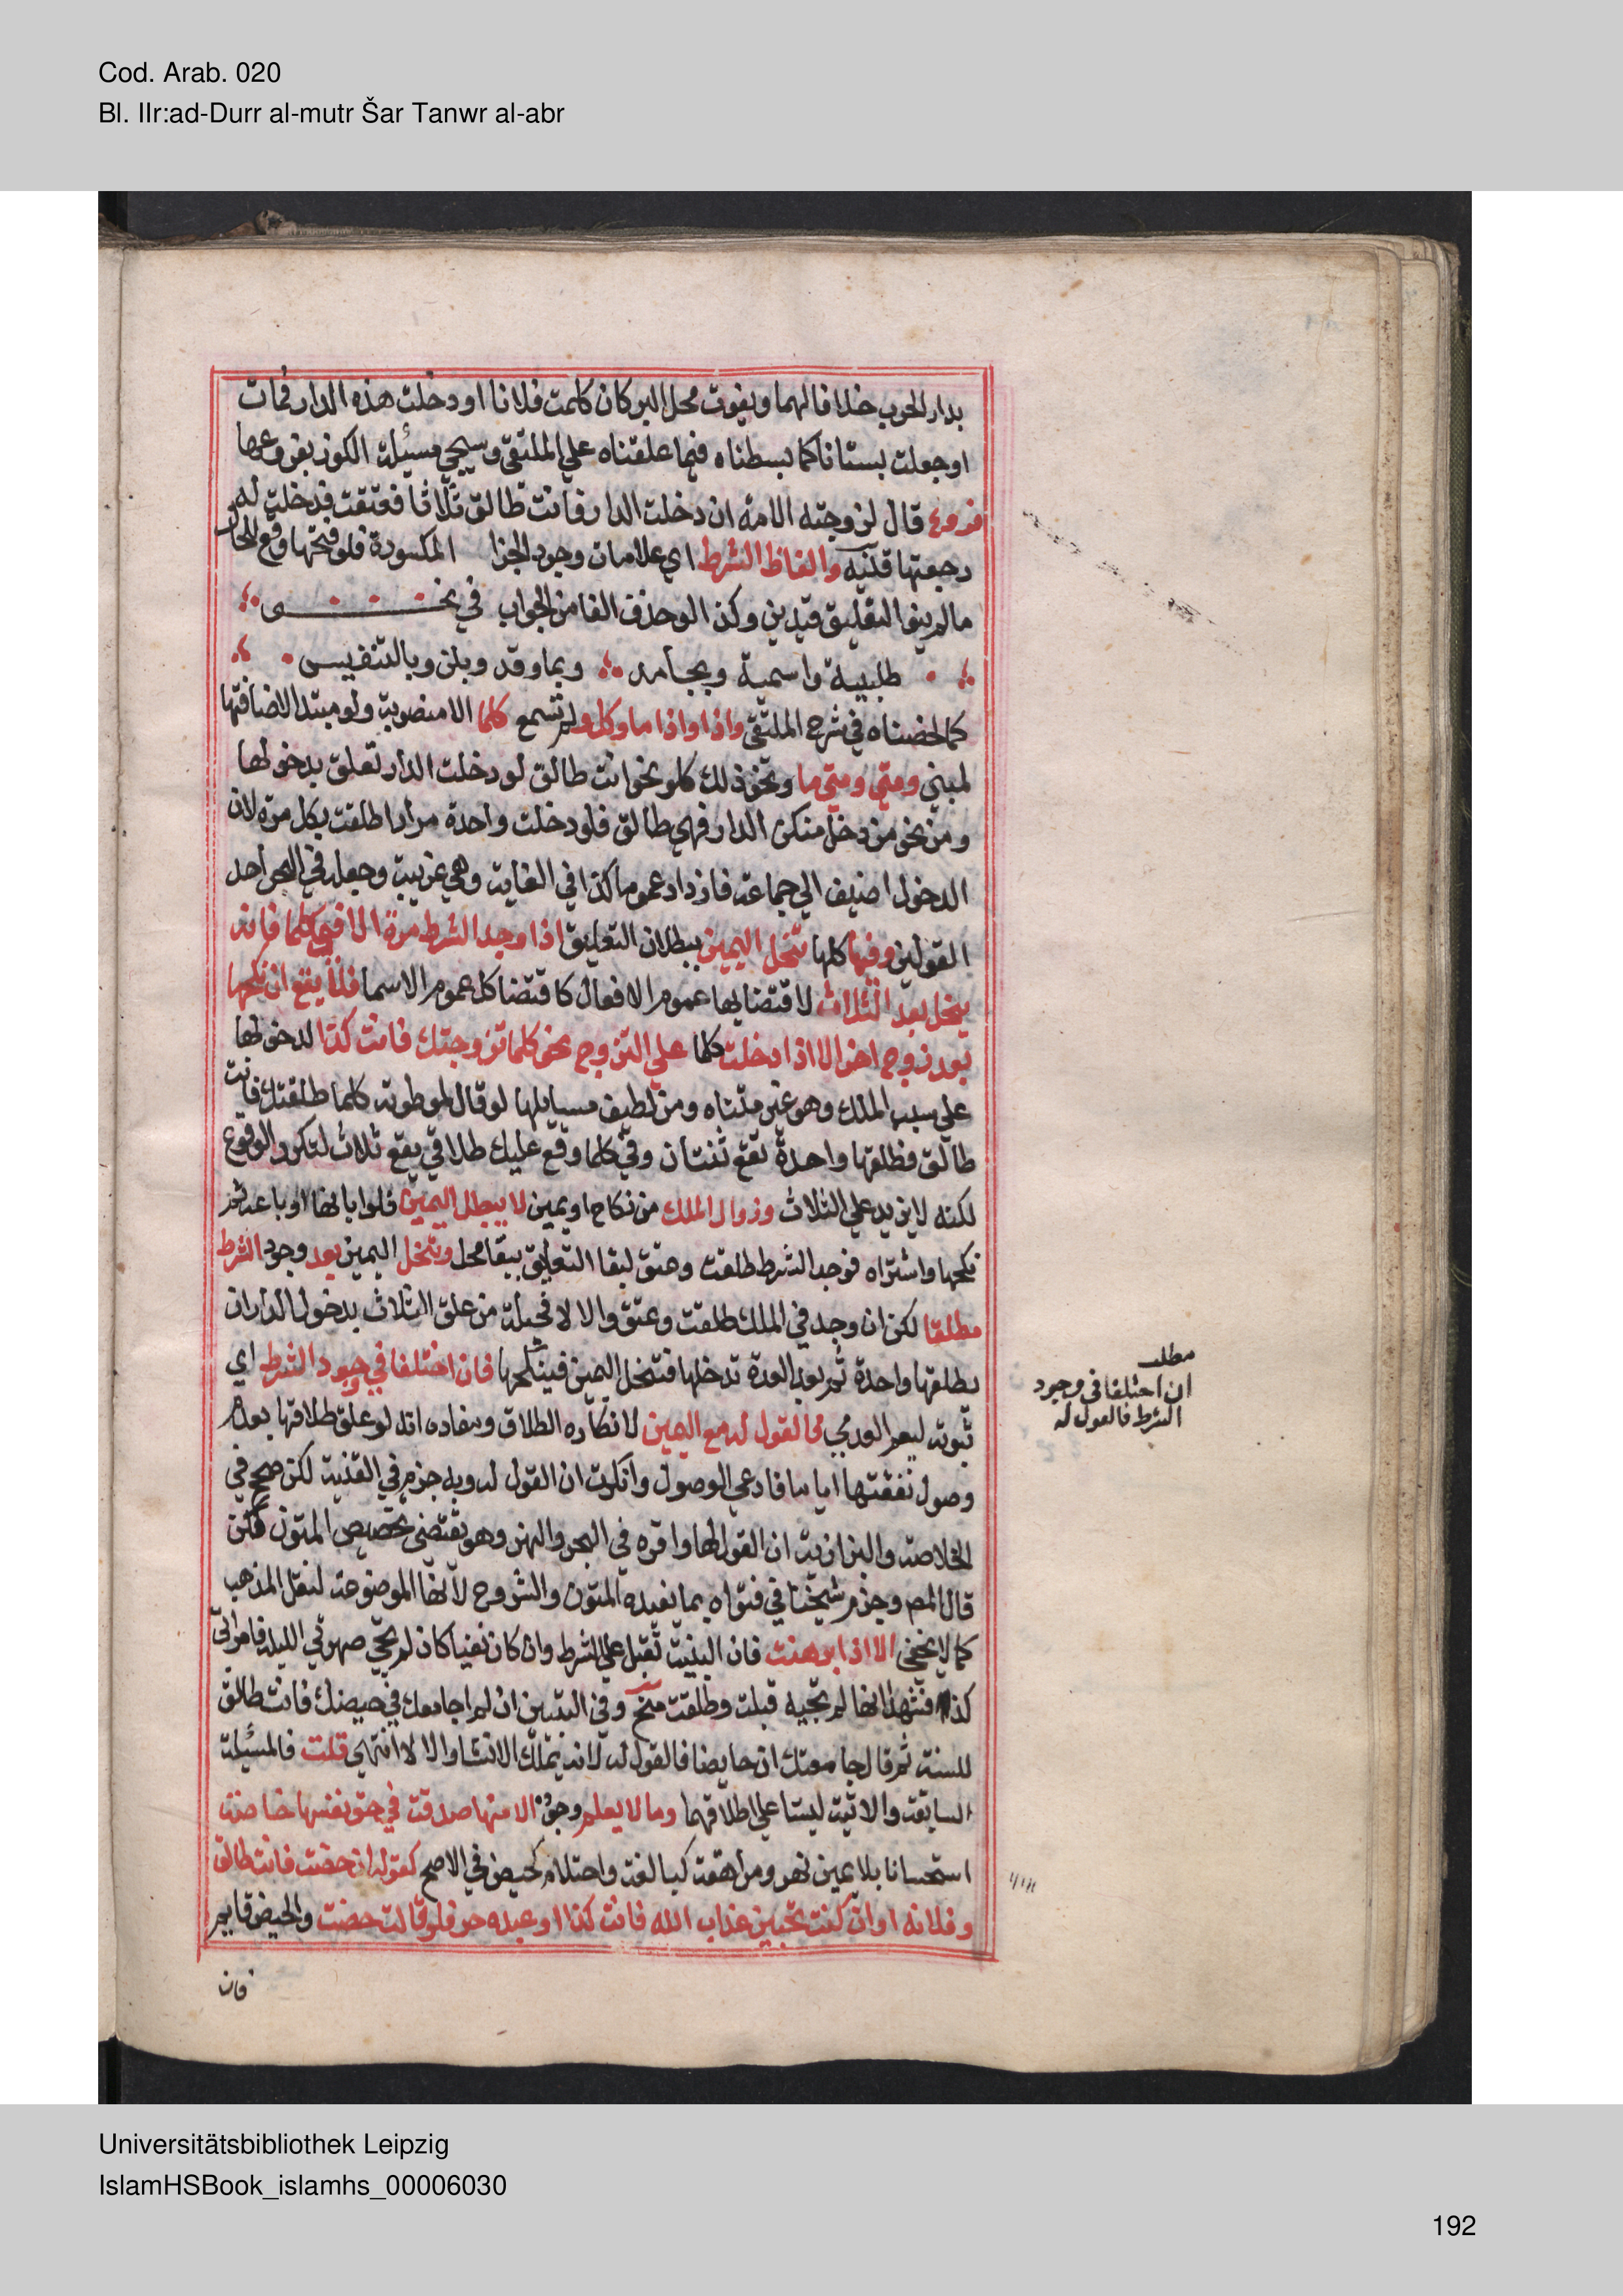 Cod. Arab. 020
Bl. IIr:ad-Durr al-mutr Šar Tanwr al-abr
بدار الحرب خلافا لهما وبفوت محل البر كان كلمت فلانا او دخلت هذه الدار فمات
او جعلت بستانا كما بسطناه فيما علقناه علي الملتقي وسيجي مسئلة الكوز بفروعها
فروع قال لزوجته الامة ان دخلت الدار فانت طالق ثلاثا فعتقت فدخلت له
رجعتها قنيه والفاظ الشرط اي علامات وجود الجزا المكسورة فلو فتحها وقع للحال
مالم ينو التعليق فيدين وكذا لو حذف الفا من الجواب في نحــــو
طلبية واسمية وبجامد وبما وقد وبلن وبالتنفيس
كما لخصناه في شرح الملتقي واذا واذا ما وكل ولم تسمع كلما الا منصوبة ولو مبتدا لاضافتها
لمبني ومتي ومتي ما ونحو ذلك كلو نحو انت طالق لو دخلت الدار تعلق بدخولها
ومن نحو من دخل منكن الدار فهي طالق فلو دخلت واحدة مرارا طلقت بكل مرة لان
الدخول اضيف الي جماعة فازداد عموما كذا في الغاية وهي غريبة وجعله في البحر احد
القولين وفيها كلها تنحل اليمين ببطلان التعليق اذا وجد الشرط مرة الا في كلما فانه
ينحل بعد الثلاث لاقتضايها عموم الافعال كاقتضا كل عموم الاسما فلا يقع ان نكحها
بعد زوج اخر الا اذا دخلت كلما علي التزوج نحو كلما تزوجتك فانت كذا لدخولها
علي سبب الملك وهو غير متناه ومن لطيف مسايلها لو قال لموطوته كلما طلقتك فانت
طالق فطلقها واحدة تقع ثنتان وفي كلما وقع عليك طلاقي يقع ثلاث لتكرر الوقوع
لكنه لا يزيد علي الثلاث وزوال الملك من نكاح او يمين لا يبطل اليمين فلو ابانها او باعه ثم
نكحها واشتراه فوجد الشرط طلقت وعتق لبقا التعليق ببقا محل وتنحل اليمين بعد وجود الشرط
مطلقا لكن ان وجد في الملك طلقت وعتق والا لا فحيلة من علق الثلاث بدخول الدار ان
يطلقها واحدة ثم بعد العدة تدخلها فتنحل اليمين فينكحها فان اختلفا في وجود الشرط اي
ثبوته ليعم العدمي فالقول له مع اليمين لانكاره الطلاق ومفاده انه لو علق طلاقها بعدم
وصول نفقتها اياما فادعي الوصول وانكرت ان القول له وبه جزم في القنية لكن صحح في
الخلاصة والبزازية ان القول لها واقره في البحر والنهر وهو يقتضي تخصيص المتون لكن
قال المص وجزم شيخنا في فتواه بما تفيده المتون والشروح لانها الموضوعة لنقل المذهب
كما لا يخفي الا اذا برهنت فان البينة تقبل علي الشرط وان كان نفيا كان لم تجي صهرتي الليلة فامراتي
كذا فشهدا انها لم تجيه قبلت وطلقت منح وفي التبيين ان لم اجامعك في حيضك فانت طالق
للسنة ثم قال جامعتك ان حايضا فالقول له لانه يملك الانشا والا لا انتهي قلت فالمسئلة
السابقة والاتية ليستا علي اطلاقهما وما لا يعلم وجوده الا منها صدقت في حق نفسها خاصة
استحسانا بلا يمين نهر ومراهقة كبالغة واحتلام كحيض في الاصح كقوله ان حضت فانت طالق
وفلانه او ان كنت تحبين عذاب الله فانت كذا او عبده حر فلو قالت حضت والحيض قايم
فان
مطلب
ان اختلفا في وجود
الشرط فالقول له
Universitätsbibliothek Leipzig
IslamHSBook_islamhs_00006030
192